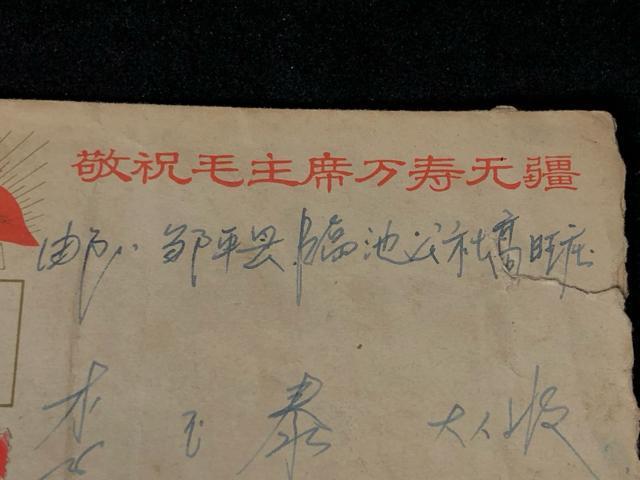 敬祝毛主席万寿无疆
邹平县临池公社高旺庄
李玉泰 大人收